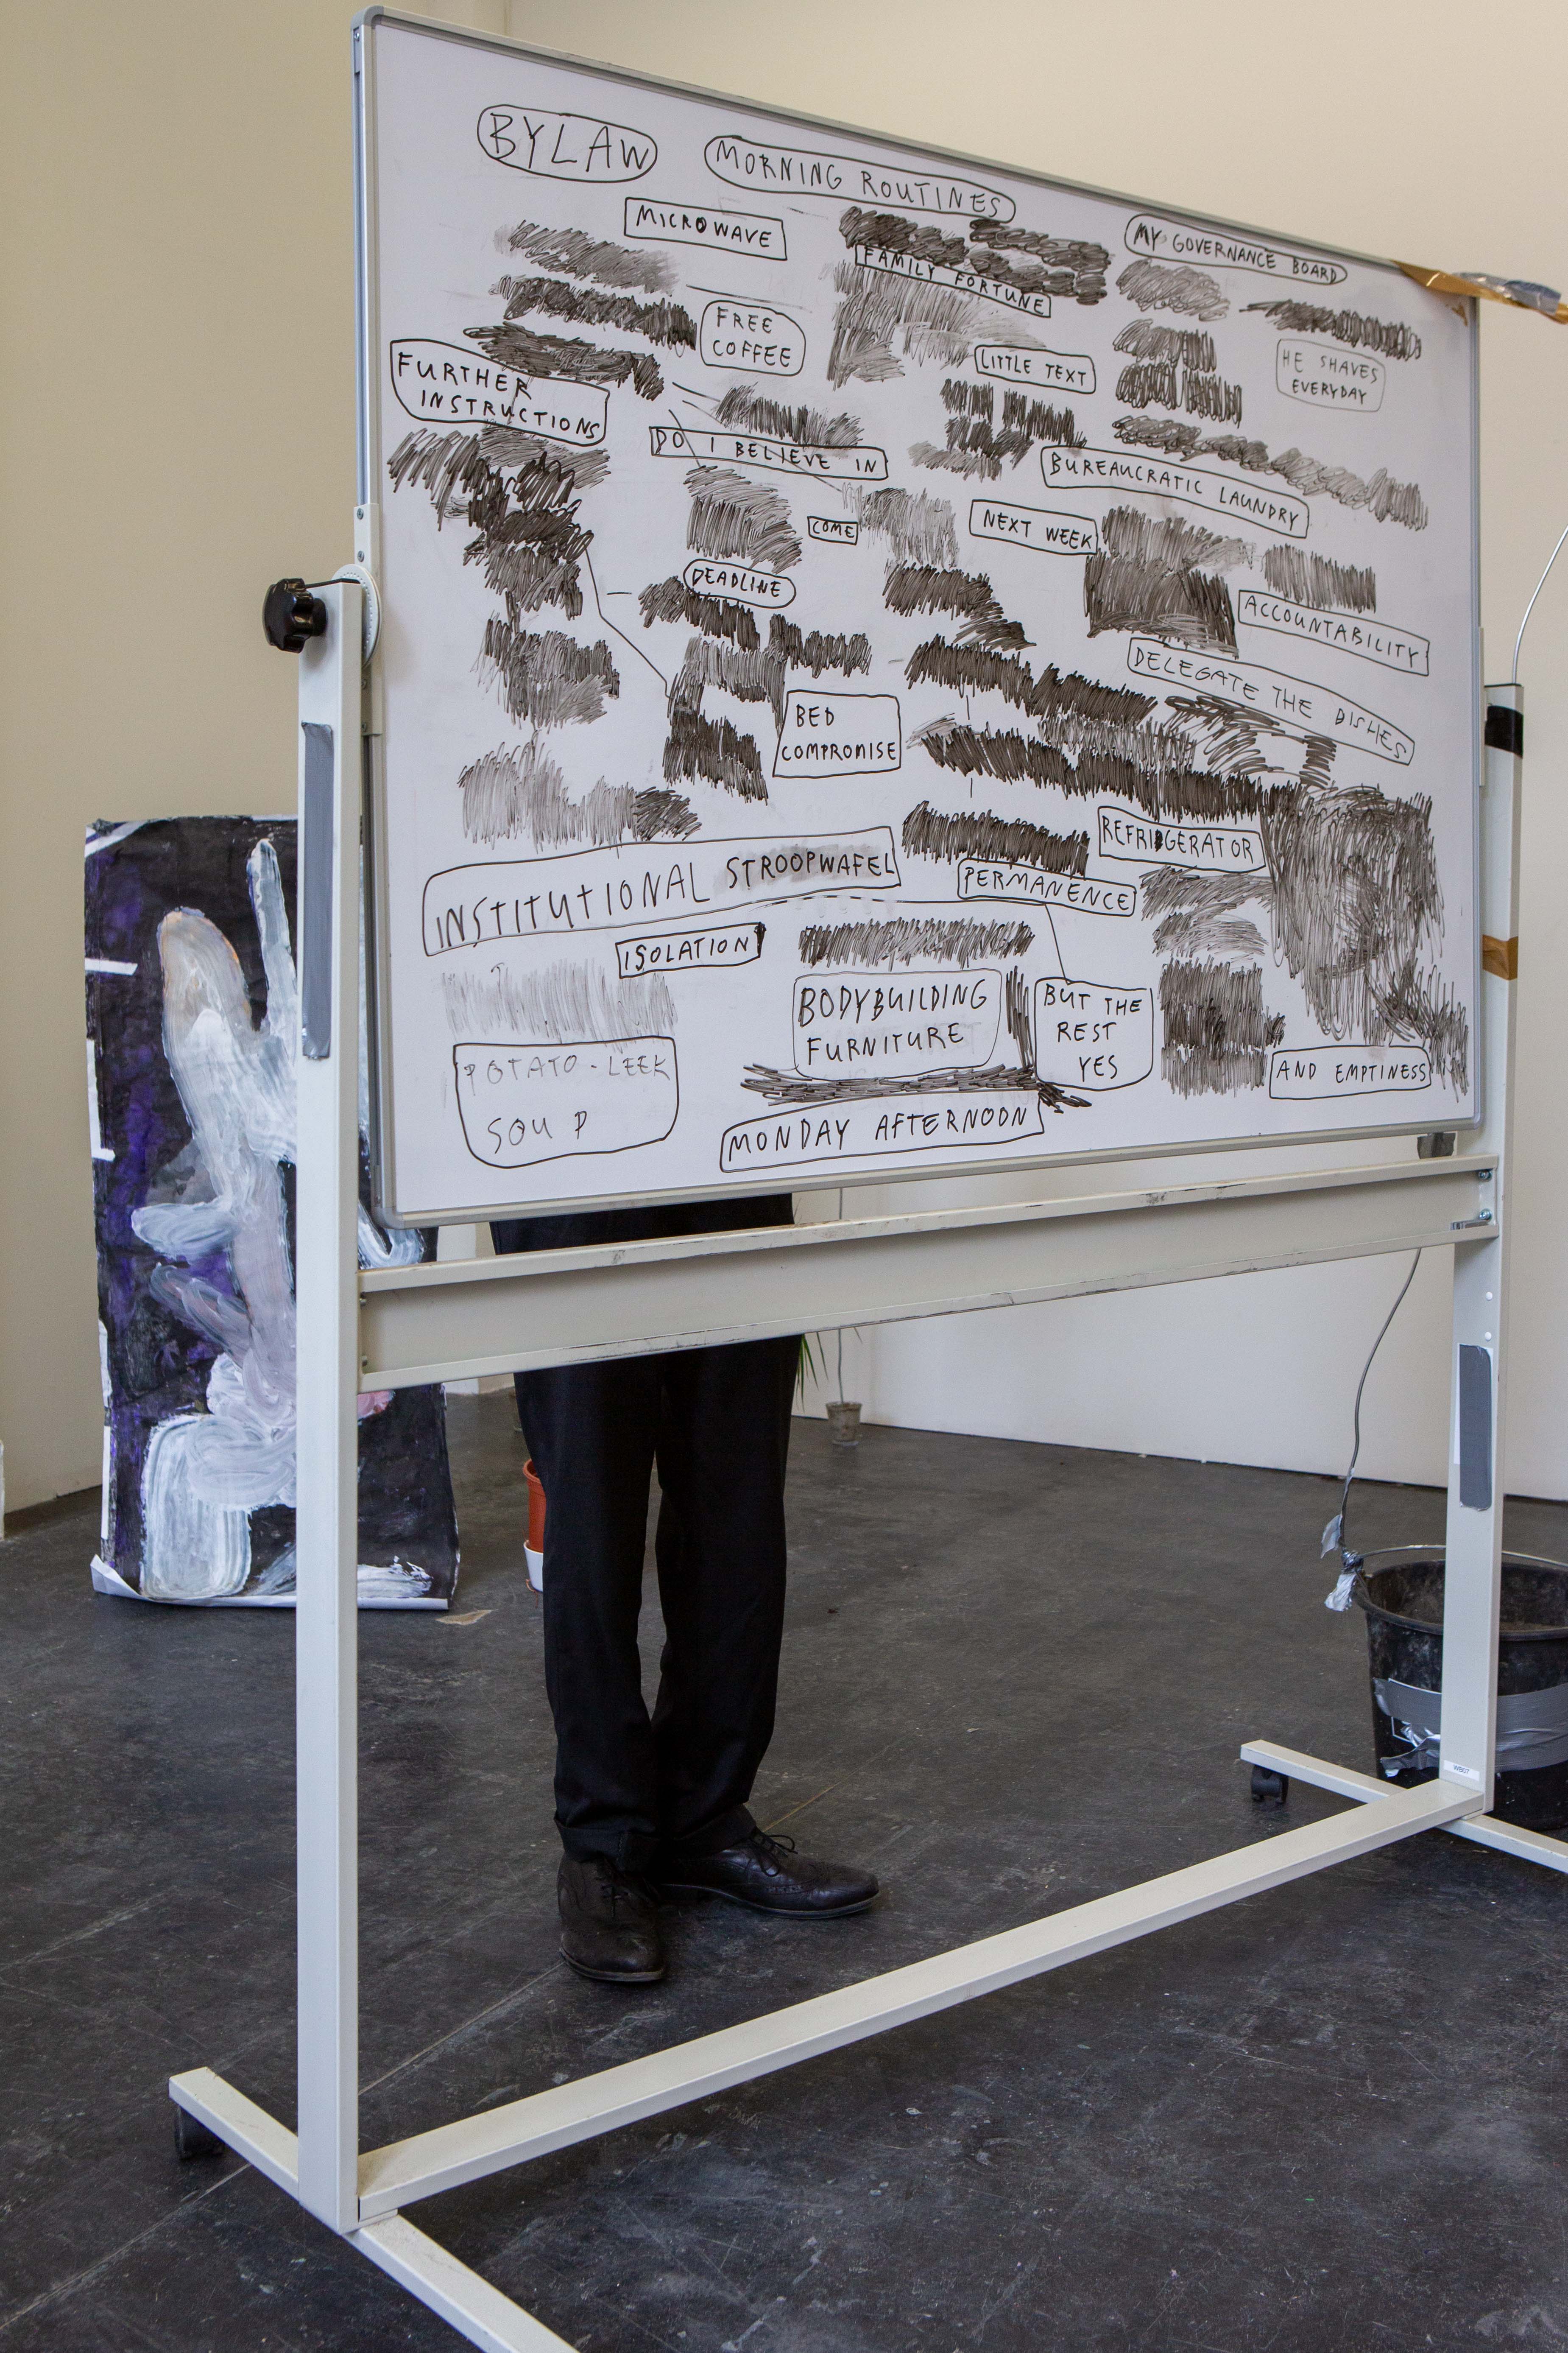 BYLAW
MORNING ROUTINES
MICROWAVE
MY GOVERNANCE BOARD
FAMILY FORTUNE
FREE
COFFEE
HE SHAVES
EVERYDAY
LITTLE TEXT
FURTHER
INSTRUCTIONS
DO I BELIEVE IN
BUREAUCRATIC LAUNDRY
COME
NEXT WEEK
DEADLINE
ACCOUNTABILITY
DELEGATE THE DISHES
BED
COMPROMISE
REFRIDGERATOR
INSTITUTIONAL STROOPWAFEL
PERMANENCE
ISOLATION
BODYBUILDING
FURNITURE
BUT THE
REST
YES
POTATO-LEEK
SOUP
AND EMPTINESS
MONDAY AFTERNOON